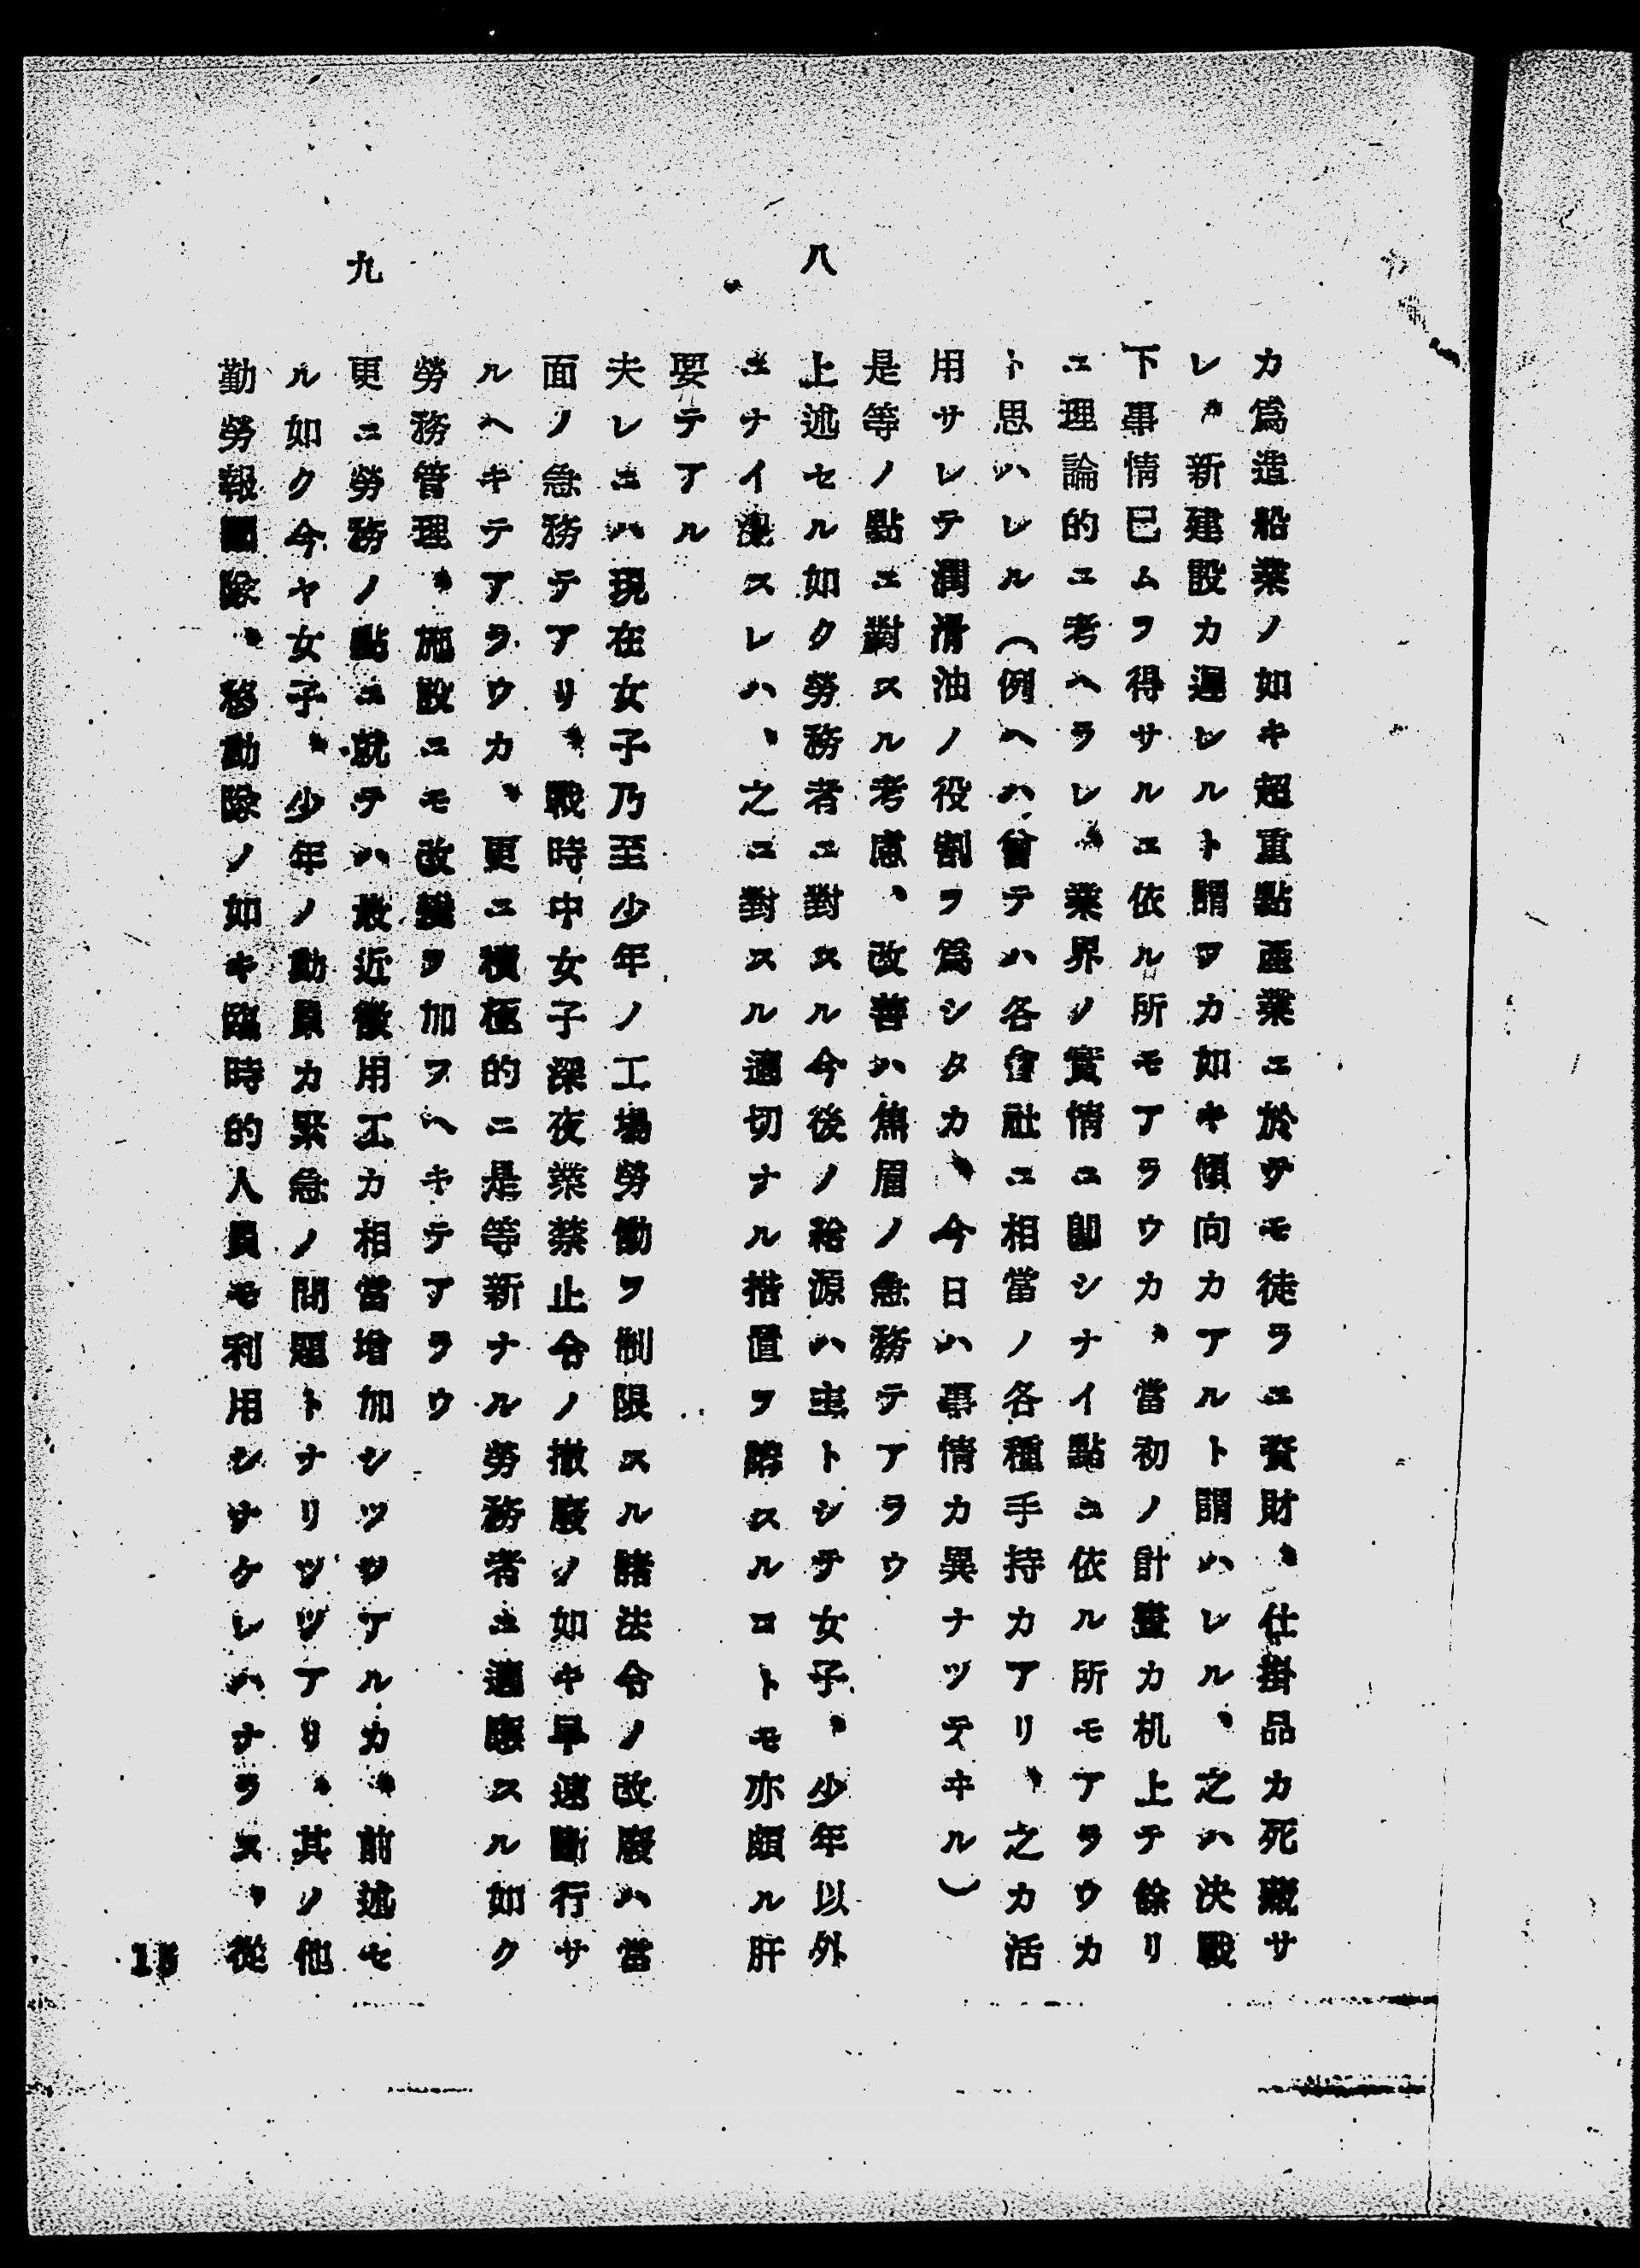 カ爲造船業ノ如キ超重點產業ニ於テモ徒ラニ資財、仕掛品カ死藏サ
レ、新建設カ遲レルト謂フカ如キ傾向カアルト謂ハレル、之ハ決戰
下事情已ムヲ得サルニ依ル所モアラウカ、當初ノ計畫カ机上テ餘リ
ニ理論的ニ考ヘラレ、業界ノ實情ニ卽シナイ點ニ依ル所モアラウカ
ト思ハレル（例ヘハ曾テハ各會社ニ相當ノ各種手持カアリ、之カ活
用サレテ潤滑油ノ役割ヲ爲シタカ、今日ハ事情カ異ナツテヰル）
是等ノ點ニ對スル考慮、改善ハ焦眉ノ急務テアラウ
八 上述セル如ク勞務者ニ對スル今後ノ給源ハ主トシテ女子、少年以外
ニナイ況スレハ、之ニ對スル適切ナル措置ヲ講スルコトモ亦頗ル肝
要テアル
夫レニハ現在女子乃至少年ノ工場勞働ヲ制限スル諸法令ノ改廢ハ當
面ノ急務テアリ、戰時中女子深夜業禁止令ノ撤廢ノ如キ早速斷行サ
ルヘキテアラウカ、更ニ積極的ニ是等新ナル勞務者ニ適應スル如ク
勞務管理、施設ニモ改變ヲ加フヘキテアラウ
九 更ニ勞務ノ點ニ就テハ最近徵用工カ相當增加シツツアルカ、前述セ
ル如ク今ヤ女子、少年ノ動員カ緊急ノ問題トナリツツアリ、其ノ他
勤勞報國隊、移動隊ノ如キ臨時的人員モ利用シナケレハナラス、從
15